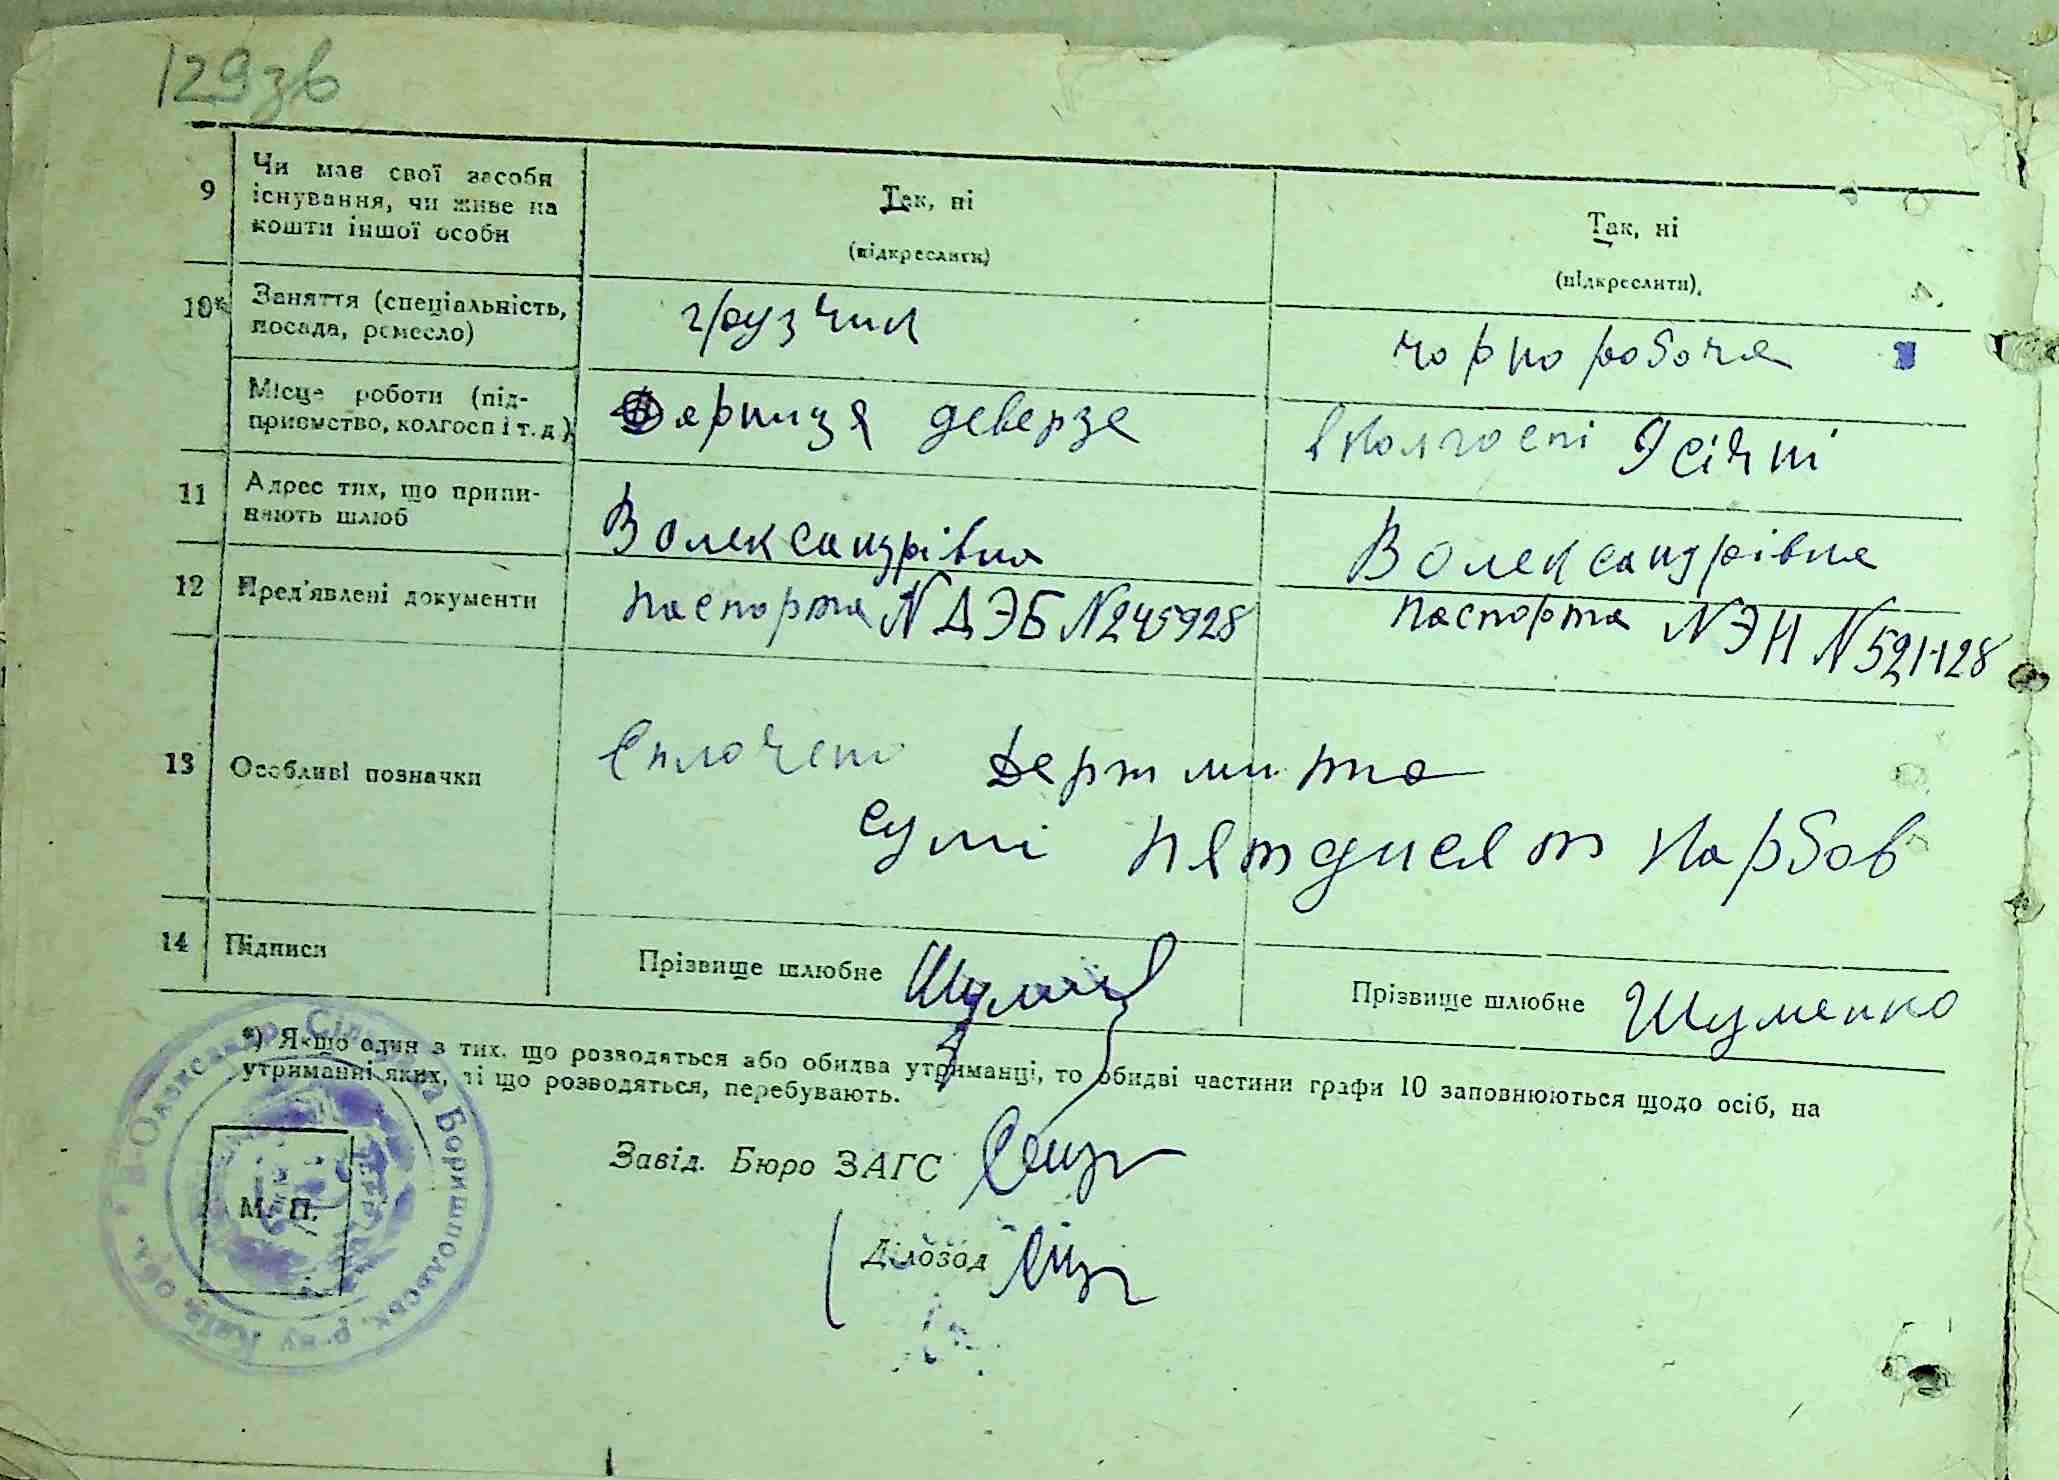 129зв
9
Чи має свої засоби
існування, чи живе на
кошти іншої особи
Так, ні
(підкреслити)
Так, ні
(підкреслити)
10*
Заняття (спеціальність,
посада, ремесло)
грузчик
чорноробоча
Місце роботи (під-
приємство, колгосп і т. д.)
Дарниця
в колгоспі 9 січні
11
Адрес тих, що припи-
няють шлюб
В Олександрівка
В Олександрівка
12
Пред'явлені документи
паспорта N ДЭБ N245928
паспорта N ЭН N521128
13
Особливі позначки
Сплочено Держмита
сумі пятдисят карбов
14
Підписи
Прізвище шлюбне
Прізвище шлюбне Шуменко
*) Якщо один з тих, що розводяться або обидва утриманці, то обидві частини графи 10 заповнюються щодо осіб, на
утриманні яких, ті що розводяться, перебувають.
Завід. Бюро ЗАГС
Діловод
М. П.
В-Олександр. Сільська Бориспольськ. р-ну Київ. обл.